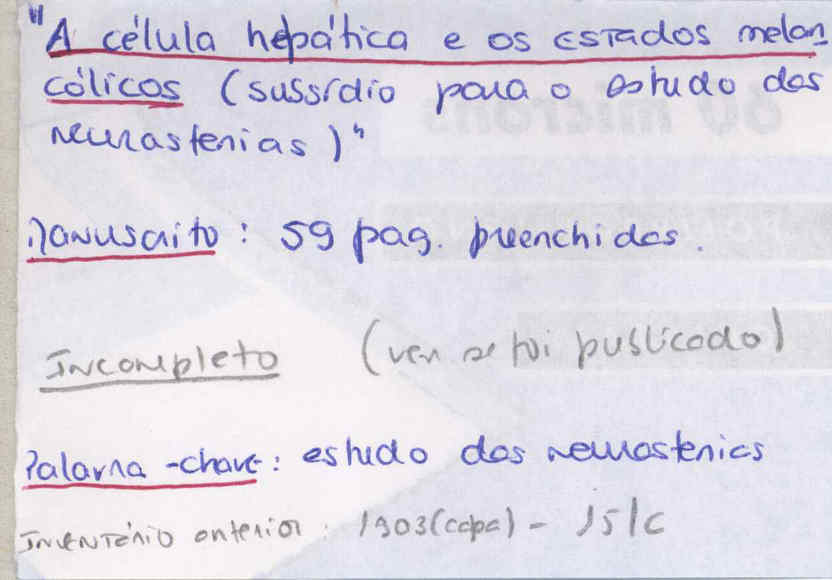 "A célula hepática e os estados melan
cólicos (sussídio para o estudo das
neurastenias)"
Manuscrito: 59 pag. preenchidas.
Incompleto (ver se foi publicado)
Palavra-chave: estudo das neurastenias
Inventário anterior: 1903(capa) - 15/C